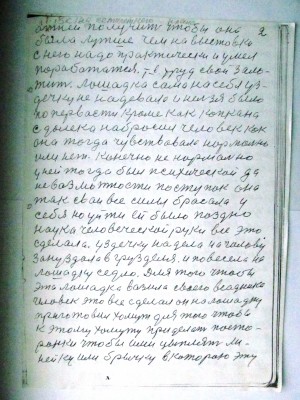 2
отней получит чтобы она
была лутше чем на выставки
с него надо практически и умел
поработатся, т-е труд свой зало-
жит. лошадка сама на себя уз-
дечку не надевала и нельзя было
по первасти кроме как копкана
с далека набросил человек как
она тогда чувствовало нормально
или нет. Конечно не нормально
у ней тогда был психический да
невозможности поступок она
так свои все силы бросала у
себя но уйти ей было поздно
наука человеческой руки все это
сделала. уздечку надела на голову
зануздала в грузделя, и повесела на
лошадку седло. Для того чтобы
эта лошадка возила своего всадника
человек это все сделал он на лошадку
приготовил хомут для того чтобы
к этому хомуту приделат посто-
ронки чтобы ими цыплят ли-
нейку или бричку в которою эту